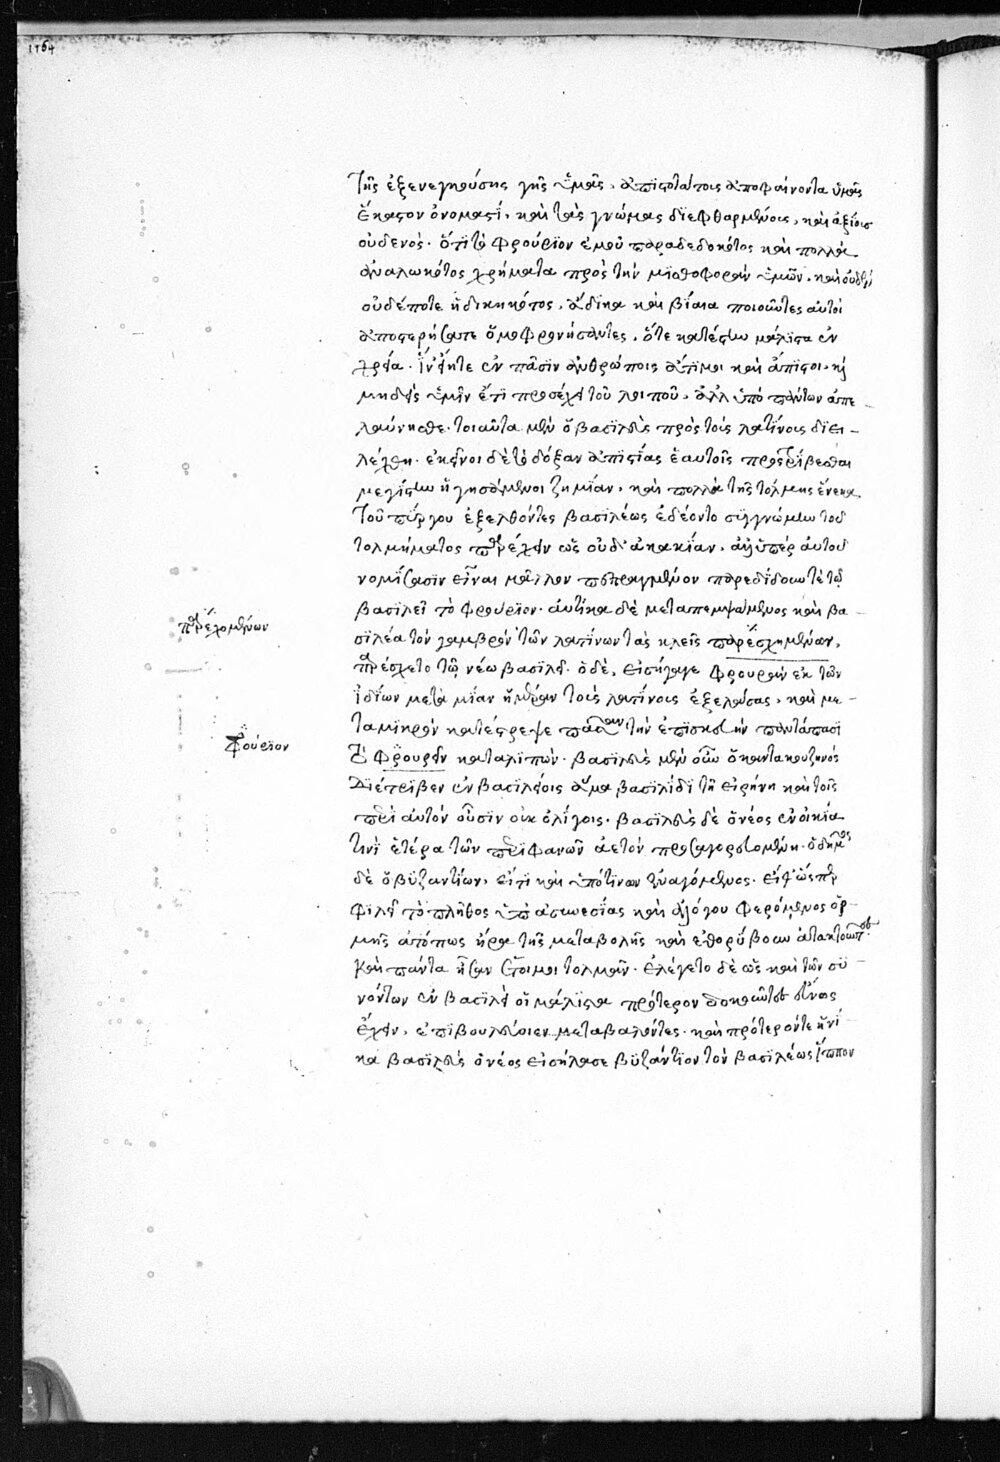 1164
τῆς ἐξενεγκούσης γῆς ὑμᾶς, ἀπιστοτάτους ἀποφαίνοντα ὑμᾶς
ἕκαστον ὀνομαστί, καὶ τὰς γνώμας διεφθαρμένους, καὶ ἀξίους
οὐδενός. ὅτι τὸ φρούριον ἐμοῦ παραδεδωκότος καὶ πολλὰ
ἀναλωκότος χρήματα πρὸς τὴν μισθοφορὰν ὑμῶν, καὶ οὐδὲν
οὐδέποτε ἠδικηκότος, ἄδικα καὶ βίαια ποιοῦντες αὐτοὶ
ἀποστερήσατε ὁμοφρονήσαντες, ὅτε κατέστην μάλιστα ἐν
χρεία. ἵν' ἦτε ἐν πᾶσιν ἀνθρώποις ἄτιμοι καὶ ἄπιστοι, καὶ
μηδεὶς ὑμῖν ἔτι προσέχη τοῦ λοιποῦ, ἀλλ' ὑπὸ πάντων ἀπε
λαύνησθε. τοιαῦτα μὲν ὁ βασιλεὺς πρὸς τοὺς λατίνους διει-
λέχθη. ἐκεῖνοι δὲ τὸ δόξαν ἀπιστίας ἑαυτοῖς προστρίβεσθαι
μεγίστην ἡγησάμενοι ζημίαν, καὶ πολλὰ τῆς τόλμης ἕνεκα
τοῦ πύργου ἐξελθόντες βασιλέως ἐδέοντο συγγνώμην τοῦ
τολμήματος παρέχειν ὡς οὐδ' κακίαν, ἀλλ' ὑπὲρ αὐτοῦ
νομίσασιν εἶναι μᾶλλον πεπραγμένον παρεδίδουν τὲ τῷ
βασιλεῖ τὸ φρούριον. αὐτίκα δὲ μεταπεμψάμενος καὶ βα-
σιλέα τὸν γαμβρὸν τῶν λατίνων τὰς κλεῖς παρεσχημένων,
παρέσχετο τῷ νέω βασιλεῖ. ὁ δὲ, εἰσήγαγε φρουρὰν ἐκ τῶν
ἰδίων μετὰ μίαν ἡμέραν τοὺς λατίνους ἐξελάσας, καὶ με-
ταμικρὸν κατέστρεψε πᾶσαν τὴν ἐπίσκεψιν παντάπασι
τὸ φρουρεῖν καταλιπών. βασιλεὺς μὲν οὖν ὁ καντακουζηνὸς
διέτριβεν ἐν βασιλείοις ἅμα βασιλίδι τῆ εἰρήνη καὶ τοῖς
περὶ αὐτὸν οὖσιν οὐκ ὀλίγοις. βασιλεὺς δὲ ὁ νέος ἐν οἰκία
τινὶ ἑτέρα τῶν περιφανῶν ἀετὸν προσαγορευομένη. ὁ δῆμος
δὲ ὁ βυζαντίων, εἴτε καὶ ὑπό τινων ἐναγόμενος. εἴθ' ὥσπερ
φιλεῖ τὸ πλῆθος ὑπὸ ἀσυνεσίας καὶ ἀλόγου φερόμενος ὁρ-
μῆς ἀτόπως ἤρα τῆς μεταβολῆς καὶ ἐθορύβουν ἀτακτοῦντες.
καὶ πάντα ἦσαν ἕτοιμοι τολμᾶν. ἐλέγετο δὲ ὡς καὶ τῶν συ-
νόντων ἐν βασιλεῖ οἳ μάλιστα πρότερον δοκοῦντες εὐνοὶς
ἔχειν, ἐπιβουλεύοιεν μεταβαλόντες. καὶ πρότερόν τε ἡνί-
κα βασιλεὺς ὁ νέος εἰσήλασε βυζάντιον τὸν βασιλέως ἵππον
παρεχομένων
φρούριον